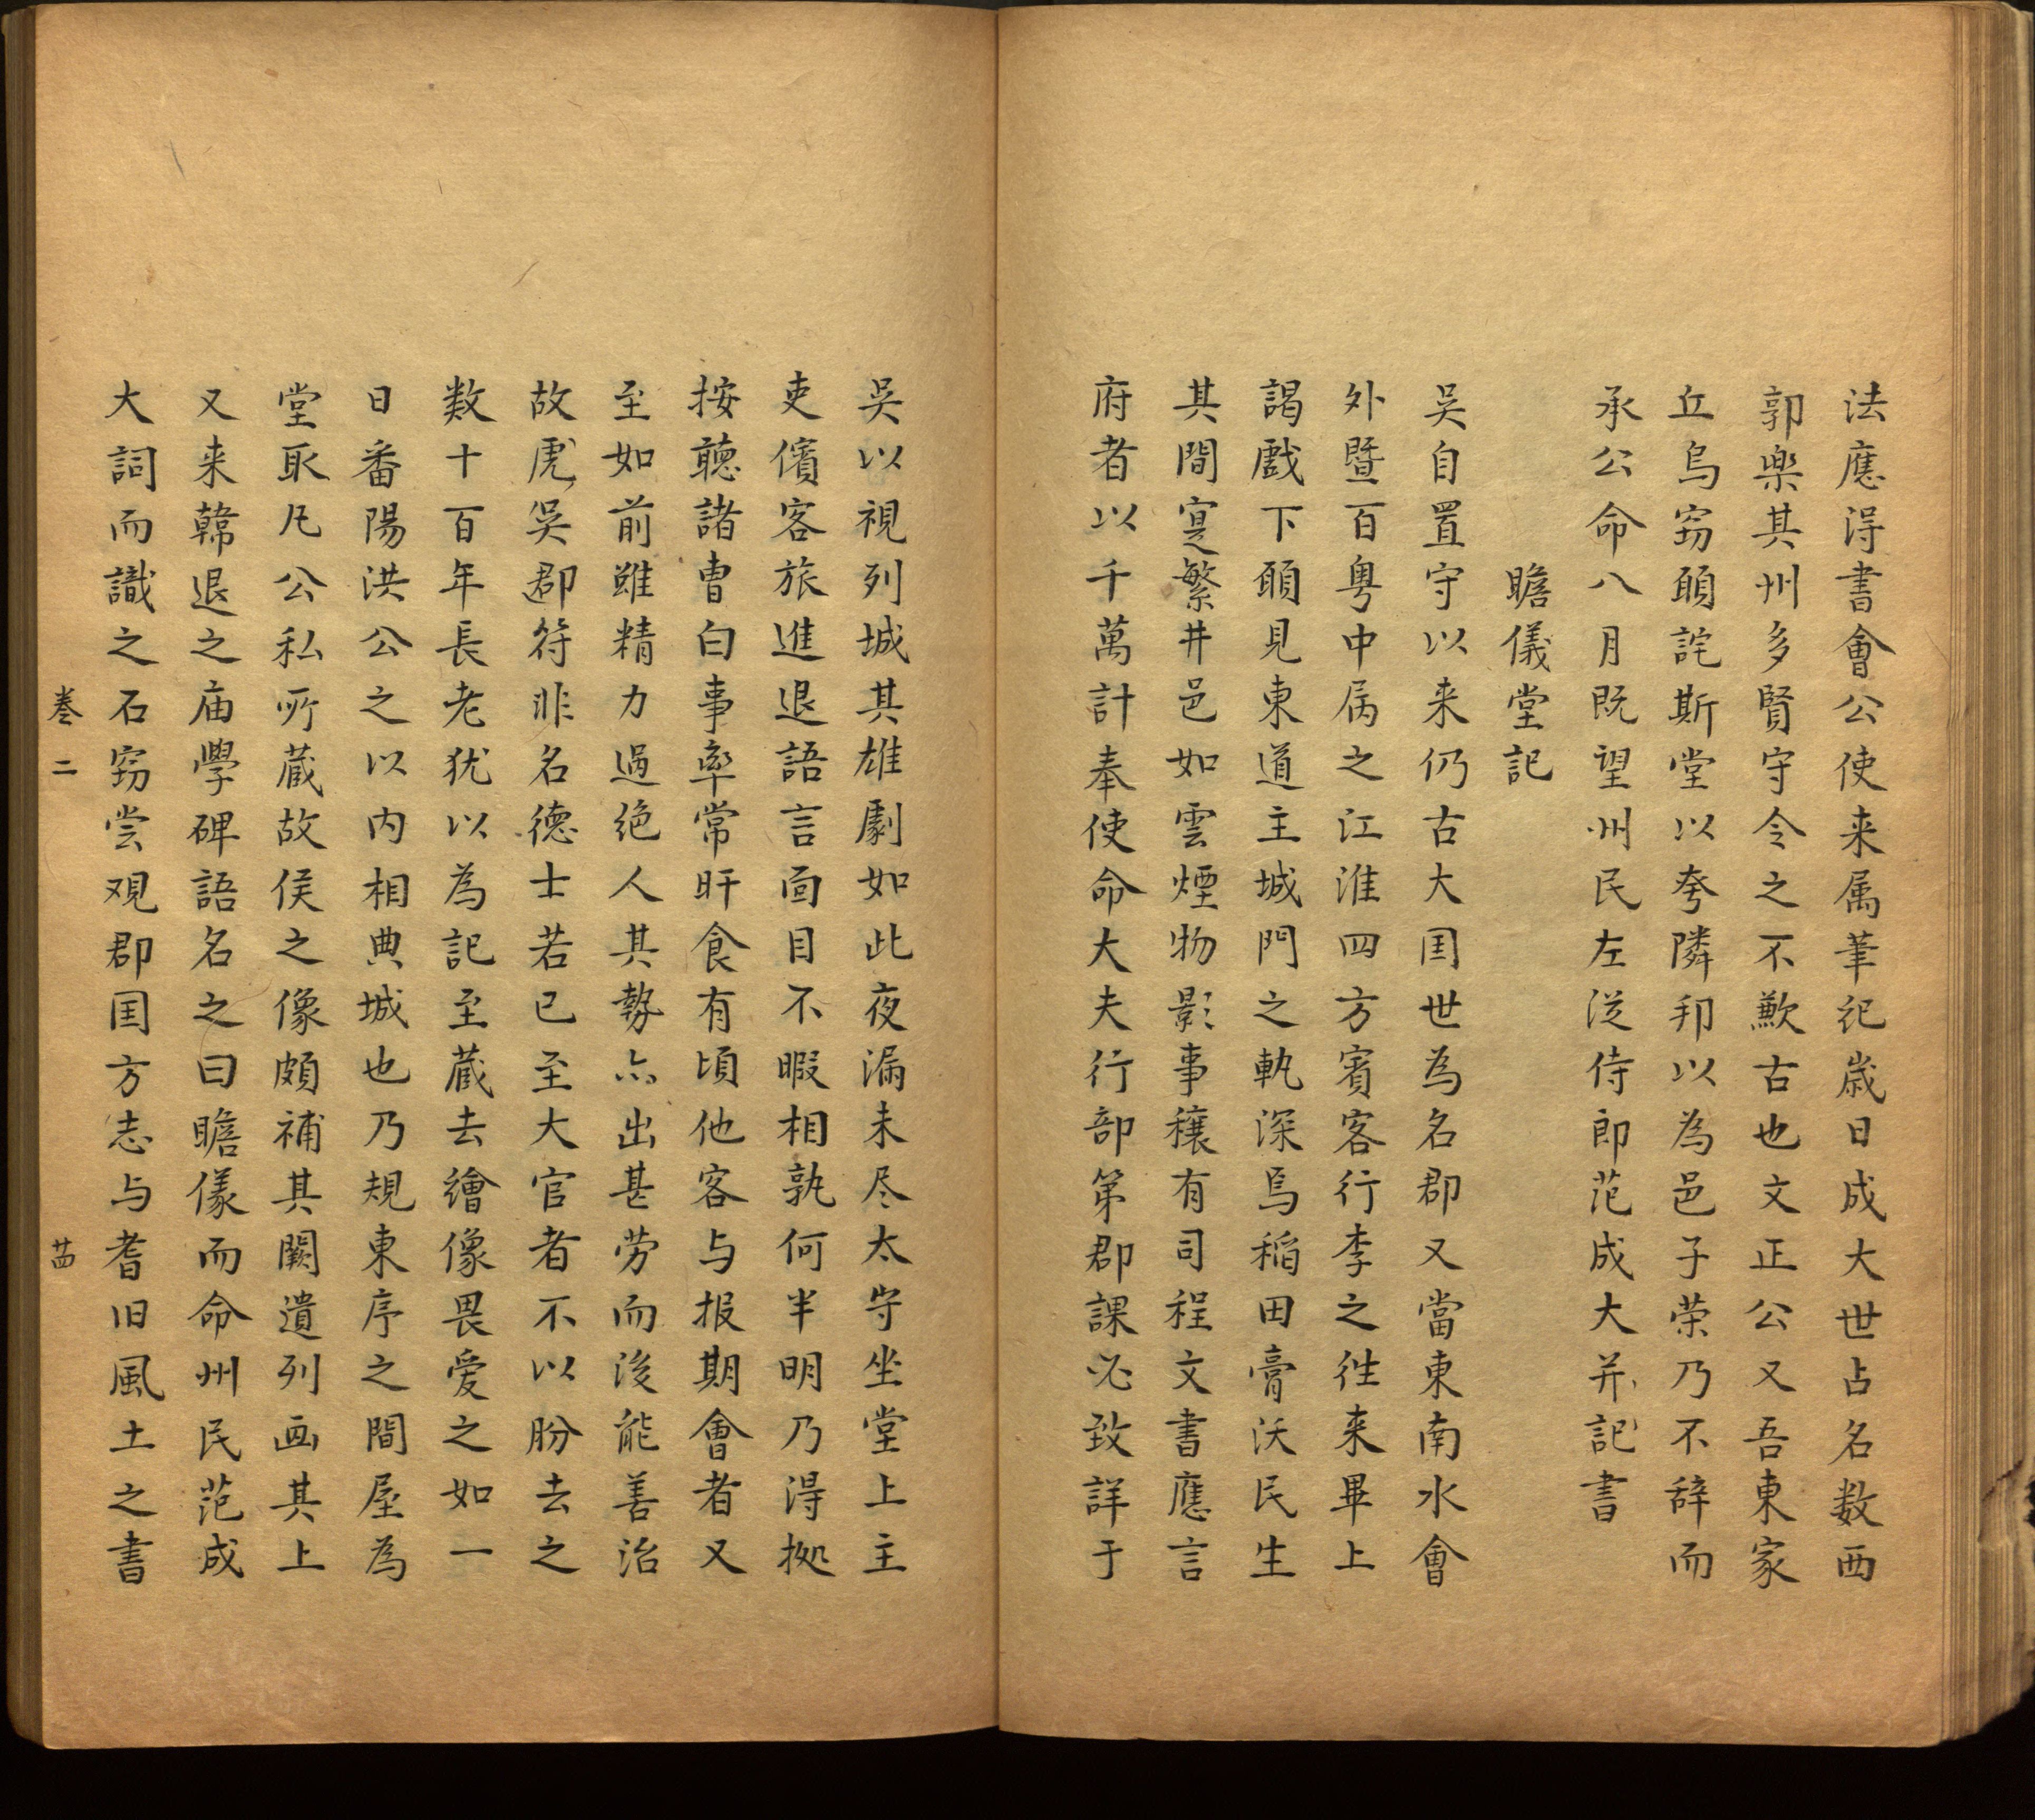 法應淂書會公使来属筆祀歳日成大世占名数西
郭楽其州多賢守令之不歉古也文正公又吾東家
丘烏窃頋詫斯堂以夸隣邦以為邑子荣乃不辞而
承公命八月既望州民左従侍郎范成大并記書
瞻儀堂記
吴自置守以来仍古大国世為名郡又當東南水會
外暨百粤中属之江淮四方賓客行李之往来畢上
謁戲下頋見東道主城門之軌深焉稲田膏沃民生
其間寔繁井邑如雲煙物影事穰有司程文書應言
府者以千萬計奉使命大夫行部第郡課必致詳于
吴以視列城其雄劇如此夜漏未尽太守坐堂上主
吏儐客旅進退語言面目不暇相孰何半明乃淂抛
按聴諸曹白事率常旰食有頃他客与报期會者又
至如前雖精力過绝人其勢亦出甚劳而後能善治
故虎吴郡符非名德士若已至大官者不以肦去之
数十百年長老犹以為記至蔵去繪像畏爱之如一
日番陽洪公之以内相典城也乃規東序之間屋為
堂取凡公私所蔵故侯之像頗補其闕遺列画其上
又来韓退之庙學碑語名之曰瞻儀而命州民范成
大詞而識之石窃尝观郡国方志与耆旧風土之書
巻二
廿四